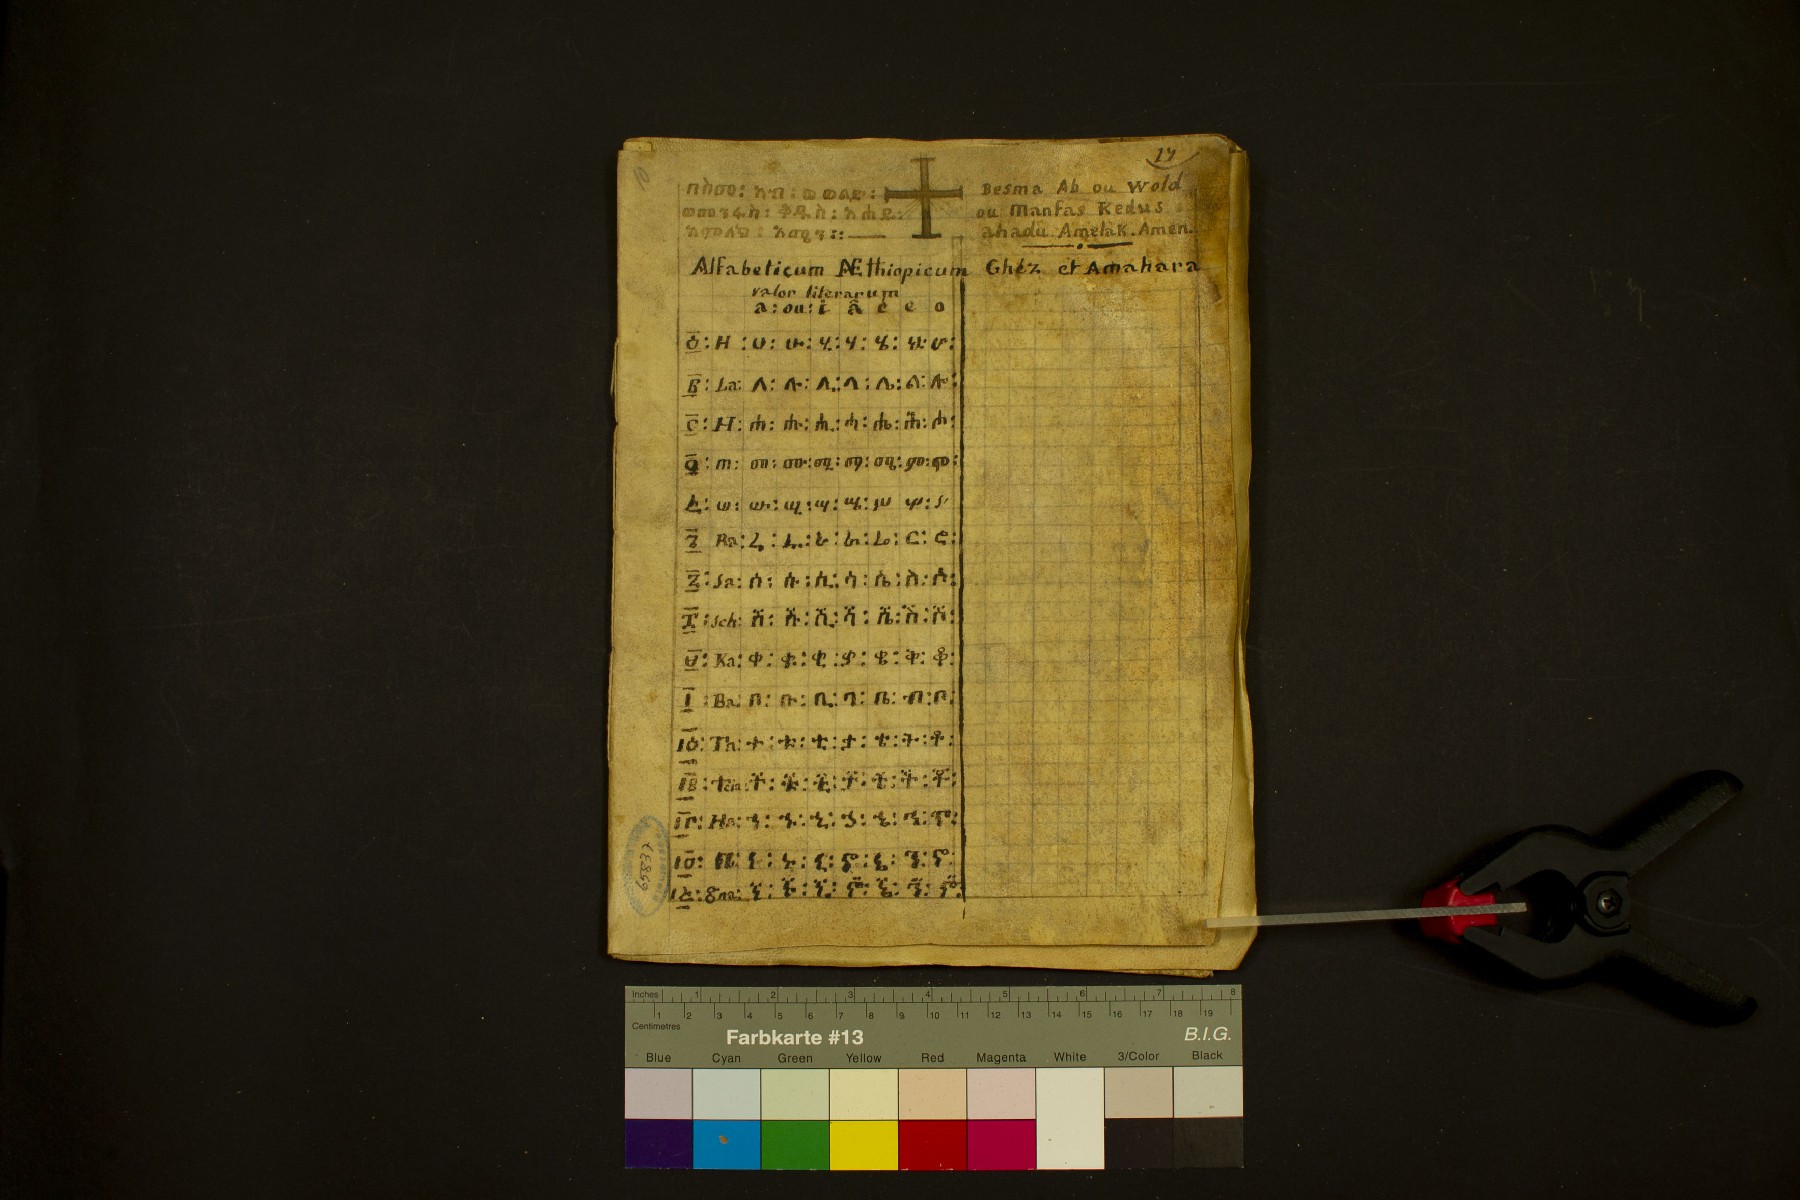 17
በስመ፡ አብ፡ ወወልድ፡
ወመንፋስ፡ ቅዱስ፡ አሐዱ፡
አምላክ፡ አሜን፡፡
Besma Ab ou Wold
ou Manfas Kedus
ahadu Amelak. Amen.
Alfabeticum Æthiopicum Ghéz et Amahara
valor literarum
a: ou: i â e e o
፩: H: ሀ: ሁ: ሂ: ሃ: ሄ: ህ: ሆ:
፪: La: ለ: ሉ: ሊ: ላ: ሌ: ል: ሎ:
፫: H: ሐ: ሑ: ሒ: ሓ: ሔ: ሕ: ሖ:
፬: m: መ: ሙ: ሚ: ማ: ሜ: ም: ሞ:
፭: ሠ: ሡ: ሢ: ሣ: ሤ: ሥ ሦ:
፮ Ra: ረ: ሩ: ሪ: ራ: ሬ: ር: ሮ:
፯: Sa: ሰ: ሱ: ሲ: ሳ: ሴ: ስ: ሶ:
፰: Sch: ሸ: ሹ: ሺ: ሻ: ሼ: ሽ: ሾ:
፱: Ka: ቀ: ቁ: ቂ: ቃ: ቄ: ቅ: ቆ:
፲: Ba: በ: ቡ: ቢ: ባ: ቤ: ብ: ቦ:
፲፩: Th: ተ: ቱ: ቲ: ታ: ቴ: ት: ቶ:
፲፪: ቸ: ቹ: ቺ: ቻ: ቼ: ች: ቾ:
፲፫: Ha: ኀ: ኁ: ኂ: ኃ: ኄ: ኅ: ኆ:
፲፬: ነ: ኑ: ኒ: ና: ኔ: ን: ኖ:
፲፭: Gna: ኘ: ኙ: ኚ: ኛ: ኜ: ኝ: ኞ:
65837
Inches 1 2 3 4 5 6 7 8
Centimetres 1 2 3 4 5 6 7 8 9 10 11 12 13 14 15 16 17 18 19
Farbkarte #13 B.I.G.
Blue Cyan Green Yellow Red Magenta White 3/Color Black